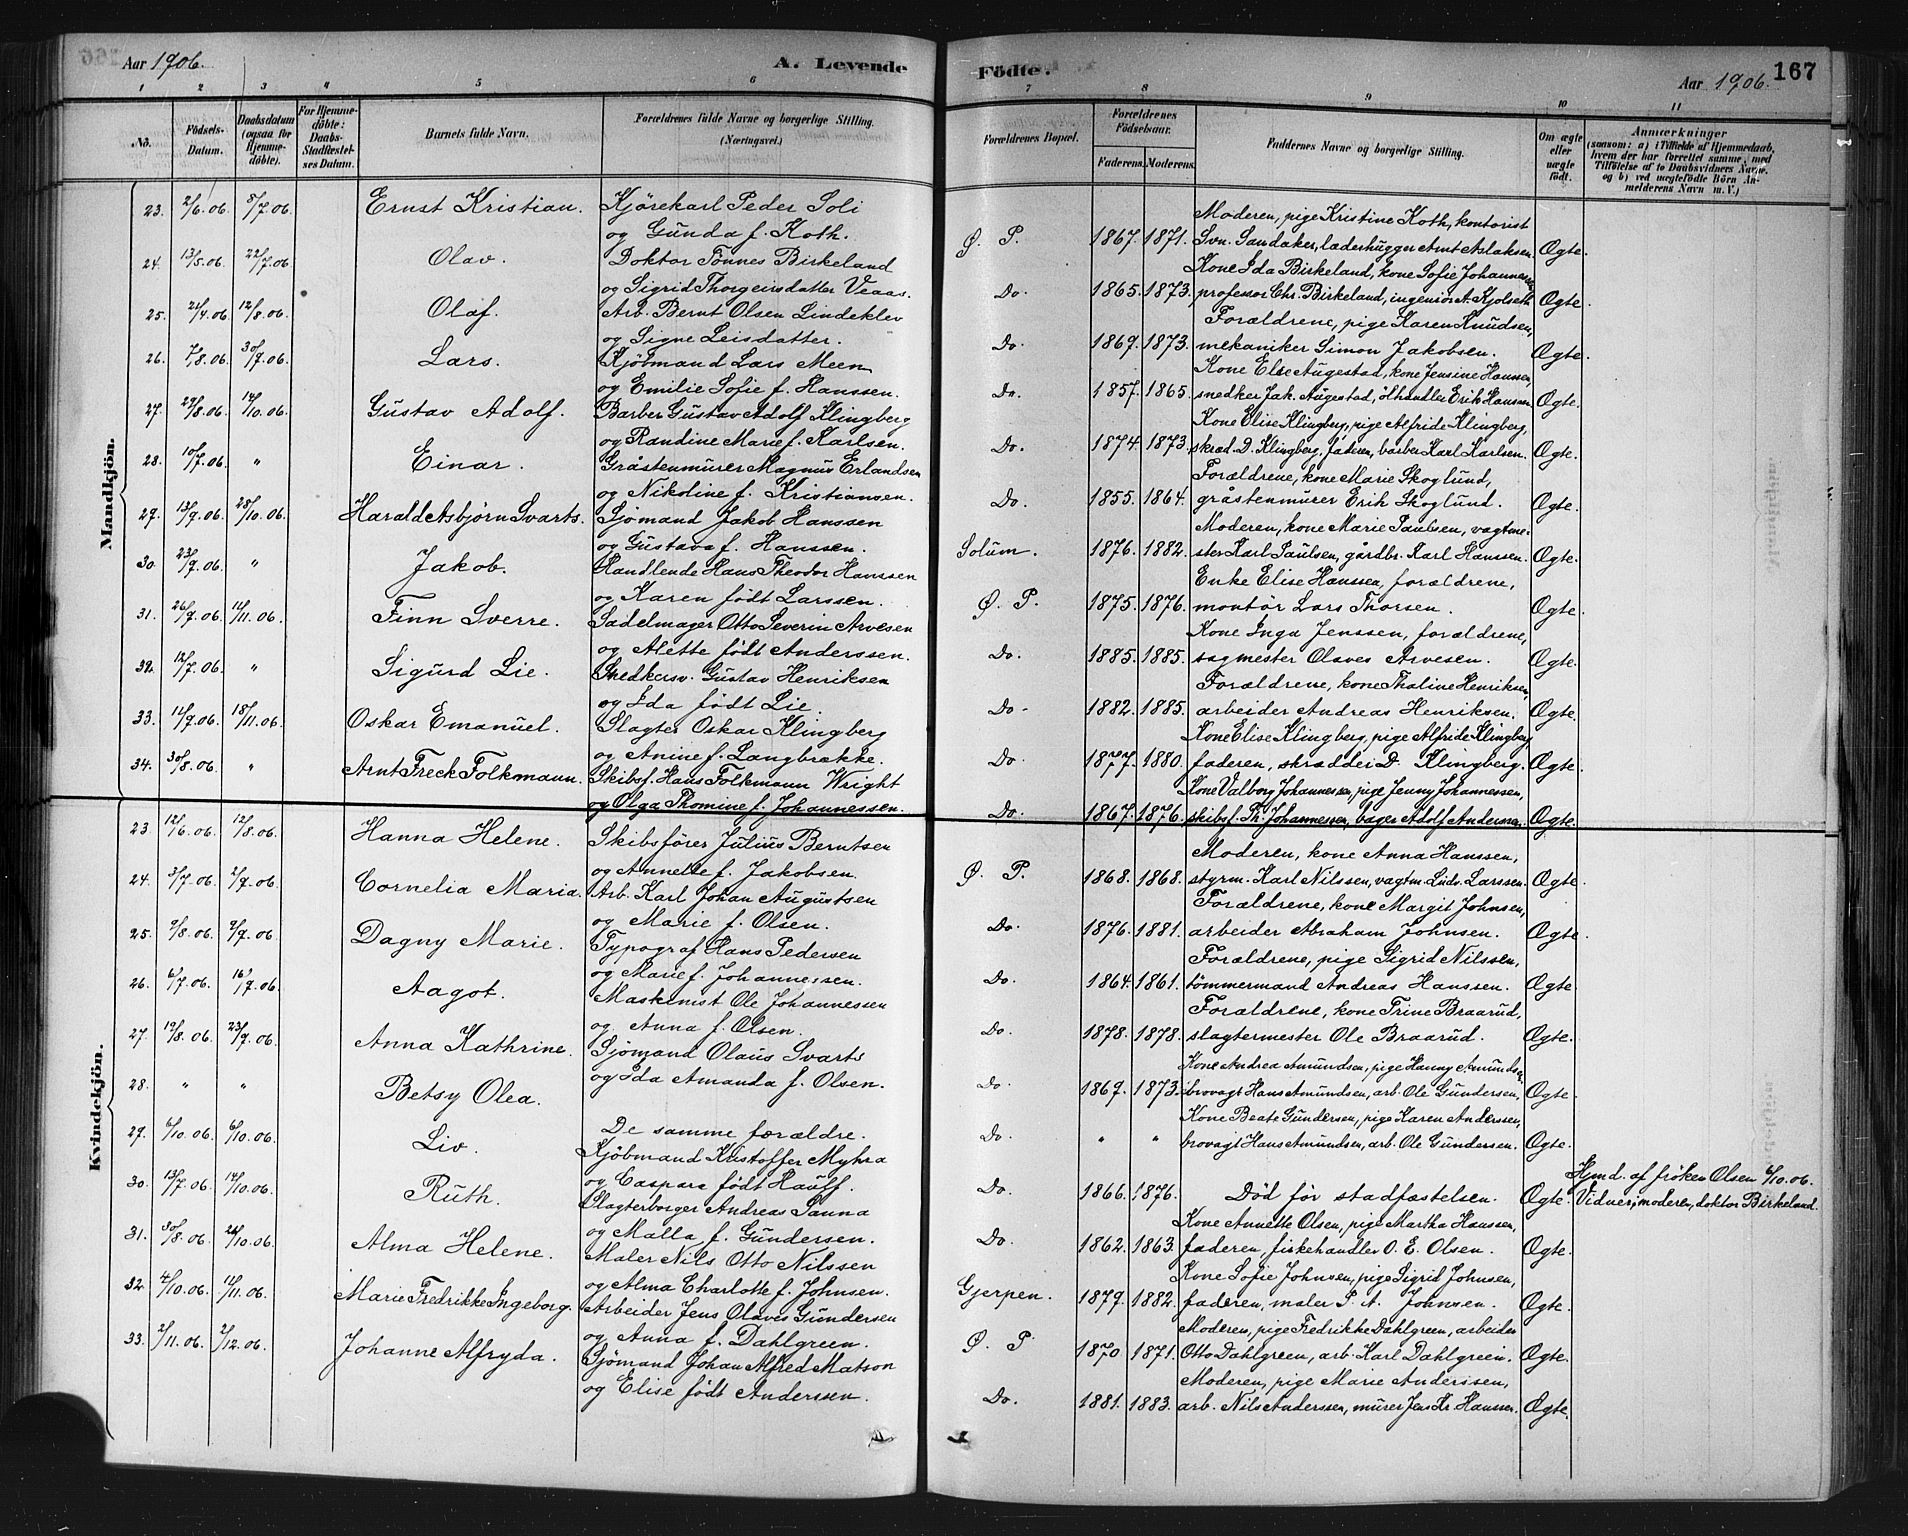 Aar 1906. A. Levende Födte. Aar 1906. 167
1 2 3 4 5 6 7 8 9 10 11
No. Födsels-Datum. Daabsdatum (ogsaa for Hjemmedöbte). For Hjemmedöbte: Daabs-Stadfæstelses Datum. Barnets fulde Navn. Forældrenes fulde Navne og borgerlige Stilling. (Næringsvei.) Forældrenes Bopæl. Forældrenes Födselsaar. Faderens. Moderens. Faddernes Navne og borgerlige Stilling. Om ægte eller uægte födt. Anmærkninger (saasom: a) i Tilfælde af Hjemmedaab, hvem der har forrettet samme, med Tilföielse af to Daabsvidners Navne, og b) ved uægtefödte Börn Anmelderens Navn m. V.)
Mandkjön.
23. 2/6.06. 8/7.06. Ernst Kristian. Kjörekarl Peder Soli
og Gunda f. Koth.
Moderen, pige Kristine Koth, kontorist
Ö. P. 1867. 1871. Svn. Sandaker, læderhugger Arnt Aslaksen. Ægte.
24. 13/5.06. 22/7.06. Olav. Doktor Tönnes Birkeland
og Sigrid Thorgeirsdatter Veaas.
Kone Ida Birkeland, kone Sofie Johannesen,
Do. 1865. 1873. professor Chr. Birkeland, ingeniör A. Kjolseth Ægte.
25. 21/4.06. 12/8.06. Olaf. Arb. Bernt Olsen Lindeklev
og Signe Leisdatter.
Forældrene, pige Karen Knudsen,
Do. 1869. 1873. mekaniker Simon Jakobsen. Ægte.
26. 7/8.06. 30/9.06. Lars. Kjöbmand Lars Meen
og Emilie Sofie f. Hanssen.
Kone Else Augestad, kone Jensine Hanssen,
Do. 1857. 1865. snedker Jak. Augestad, ölhandler Erik Hanssen. Ægte.
27. 29/8.06. 14/10.06. Gustav Adolf. Barber Gustav Adolf Klingberg
og Randine Marie f. Karlsen.
Kone Elise Klingberg, pige Alfride Klingberg,
Do. 1874. 1873. skræd. D. Klingberg, faderen, barber Karl Karlsen. Ægte.
28. 10/7.06. " Einar. Gråstenmurer Magnus Erlandsen
og Nikoline f. Kristiansen.
Forældrene, kone Marie Skoglund,
Do. 1855. 1864. gråstenmurer Erik Skoglund. Ægte.
29. 13/9.06. 28/10.06. Harald Asbjörn Svarts. Sjömand Jakob Hanssen
og Gustava f. Hanssen.
Moderen, kone Marie Paulsen, vagtme-
Solum. 1876. 1882. ster Karl Paulsen, gårdbr. Karl Hanssen. Ægte.
30. 23/9.06. " Jakob. Handlende Hans Theodor Hanssen
og Karen född Larssen.
Enke Elise Hanssen, forældrene,
Ö. P. 1875. 1876. montör Lars Thorsen. Ægte.
31. 26/9.06. 11/11.06. Finn Sverre. Sadelmager Otto Severin Arvesen
og Alette födt Anderssen.
Kone Inga Jenssen, forældrene,
Do. 1885. 1885. sagmester Olaves Arvesen. Ægte.
32. 12/7.06. " Sigurd Lie. Snedkersv. Gustav Henriksen
og Ida födt Lie.
Forældrene, kone Thaline Henriksen,
Do. 1882. 1885. arbeider Andreas Henriksen. Ægte.
33. 11/9.06. 18/11.06. Oskar Emanuel. Slagter Oskar Klingberg
og Anine f. Langbrække.
Kone Elise Klingberg, pige Alfride Klingberg
Do. 1877. 1880. faderen, skrædder D. Klingberg. Ægte.
34. 30/8.06. " Arnt Freck Folkmann. Skibsf. Hans Folkmann Wright
og Olga Thomine f. Johannessen.
Kone Valborg Johannessen, pige Jenny Johannessen,
Do. 1867. 1876. skibsf. Th. Johannessen, bager Adolf Anderssen. Ægte.
Kvindekjön.
23. 12/6.06. 12/8.06. Hanna Helene. Skibsförer Julius Berntsen
og Annette f. Jakobsen.
Moderen, kone Anna Hanssen,
Ö. P. 1868. 1868. styrm. Karl Nilssen, vagtm. Ludv. Larssen. Ægte.
24. 3/7.06. 2/9.06. Cornelia Maria. Arb. Karl Johan Augustsen
og Marie f. Olsen.
Forældrene, kone Margit Johnsen,
Do. 1876. 1881. arbeider Abraham Johnsen. Ægte.
25. 9/8.06. 9/9.06. Dagny Marie. Typograf Hans Pedersen
og Marie f. Johannessen.
Forældrene, pige Sigrid Nilssen,
Do. 1864. 1861. tömmermand Andreas Hanssen. Ægte
26. 6/7.06. 16/9.06. Aagot. Maskinist Ole Johannessen
og Anna f. Olsen.
Forældrene, kone Trine Braarud,
Do. 1878. 1878. slagtermester Ole Braarud. Ægte.
27. 19/8.06. 23/9.06. Anna Kathrine. Sjömand Olaus Svarts
og Ida Amanda f. Olsen.
Kone Andrea Amundsen, pige Hanny Amundsen
Do. 1869. 1873. brovagt Hans Amundsen, arb. Ole Gundersen, Ægte.
28. " " Betsy Olea. De samme forældre.
Kone Beate Gundersen, pige Karen Anderssen
Do. " " brovagt Hans Amundsen, arb. Ole Gundersen. Ægte.
29. 6/10.06. 6/10.06. Liv. Kjöbmand Kristoffer Myhra
og Caspara födt Hauff.
Hjmd. af fröken Olsen 6/10.06.
Do. 1866. 1876. Död för stadfæstelsen. Ægte. Vidner: moderen, doktor Birkeland.
30. 13/7.06. 14/10.06. Ruth. Slagterborger Andreas Sanna
og Malla f. Gundersen.
Kone Annette Olsen, pige Martha Hanssen,
Do. 1862. 1863. faderen, fiskehandler O. E. Olsen. Ægte.
31. 30/8.06. 28/10.06. Alma Helene. Maler Nils Otto Nilssen
og Alma Charlotte f. Johnsen.
Kone Sofie Johnsen, pige Sigrid Johnsen,
Gjerpen. 1879. 1882. faderen, maler S. A. Johnsen. Ægte.
32. 4/10.06. 11/11.06. Marie Fredrikke Ingeborg. Arbeider Jens Olaves Gundersen
og Anna f. Dahlgreen.
Moderen, pige Fredrikke Dahlgreen, arbeider
Ö. P 1870 1871. Otto Dahlgreen, arb. Karl Dahlgreen. Ægte.
33. 2/11.06. 2/12.06. Johanne Alfryda. Sjömand Johan Alfred Matson
og Elise födt Anderssen.
Moderen, pige Marie Anderssen,
Do. 1881. 1883. arb. Nils Anderssen, murer Jens Kr. Hanssen. Ægte.